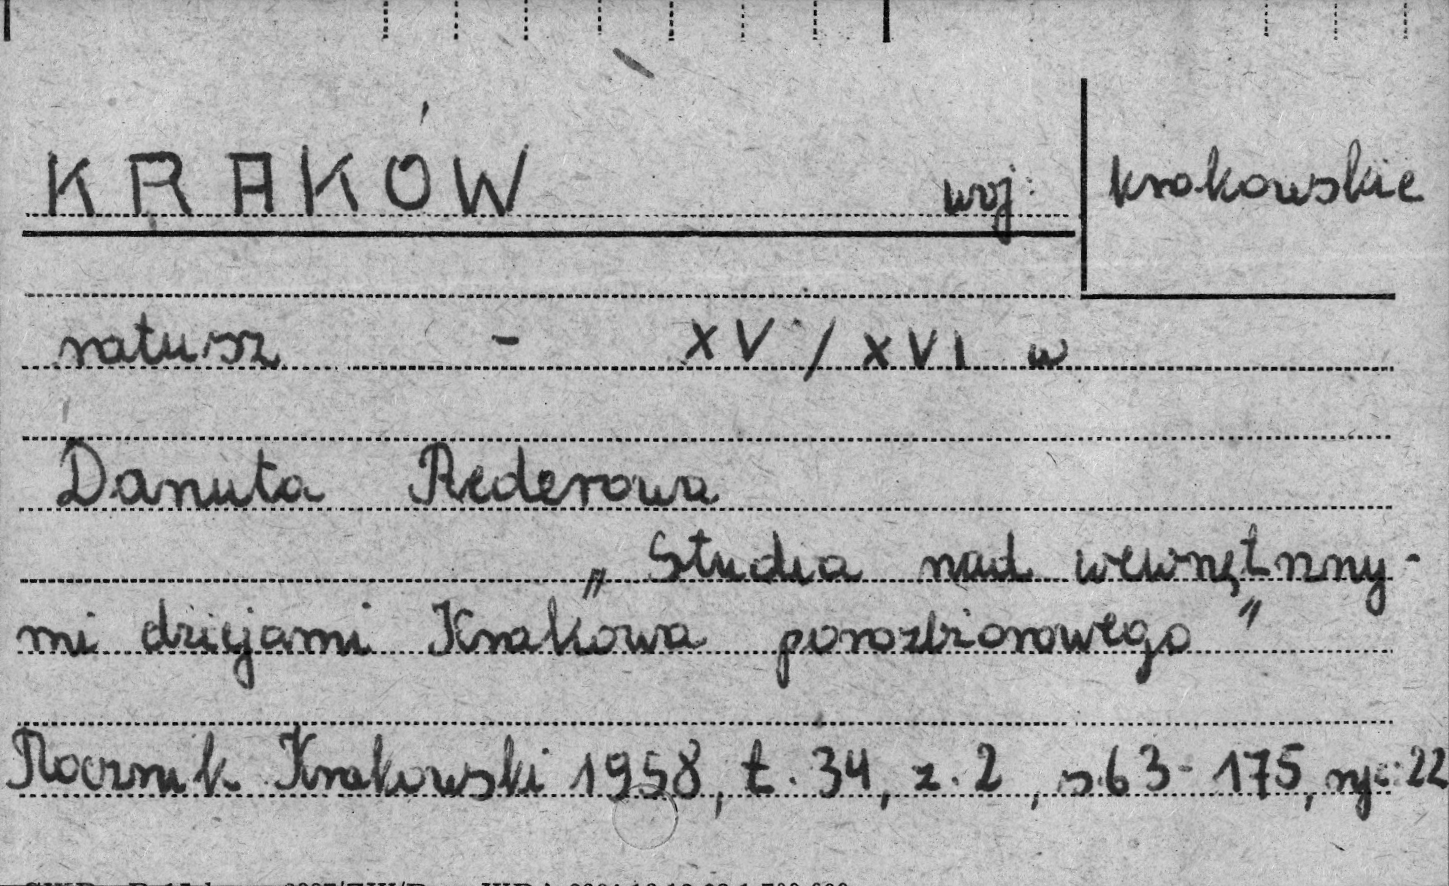 KRAKÓW woj: krakowskie
ratusz - XV / XVI w
Danuta Rederowa
„Studia nad wewnętrzny-
mi dziejami Krakowa porozbiorowego"
Rocznik Krakowski 1958, t. 34, z. 2, s.63-175, ryc: 22